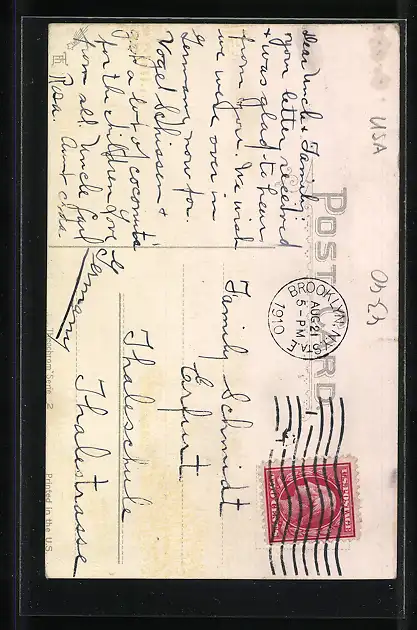 USA
POST CARD
BROOKLYN, N.Y.
AUG 21
5-PM
1910
STA. E
U.S. POSTAGE
Dear Uncle & Family:
your letter received
& was glad to hear
from you. We wish
we were over in
Germany now for
Vogel Schiessen &
a lot of cocoanuts
for the children Love
from all. Uncle
Rosa. Aunt
Family Schmidt
Erfurt
Thaleschule
Thalestrasse
Germany
Serie 2
Printed in the U.S.